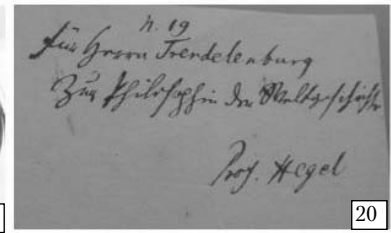 N. 19
Für Herrn Trendelenburg
Zur Philosophie der Weltgeschichte
Prof. Hegel
20